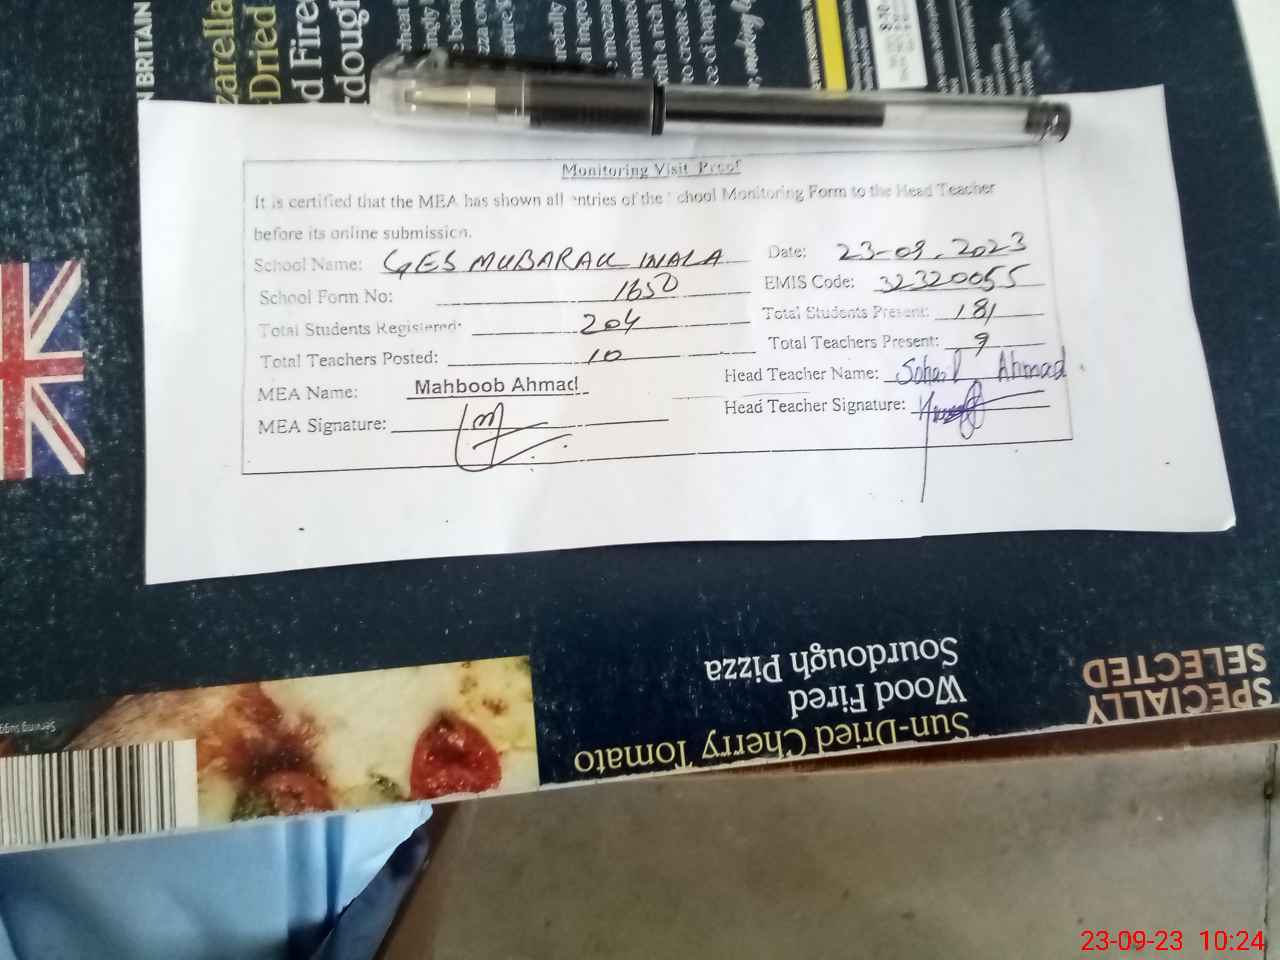 BRITAIN
Monitoring Visit Proof
It is certified that the MEA has shown all entries of the School Monitoring Form to the Head Teacher
before its online submission.
School Name: GES MUBARAK WALA Date: 23-09-2023
School Form No: 1650 EMIS Code: 32320055
Total Students Registered: 204 Total Students Present: 181
Total Teachers Posted: 10 Total Teachers Present: 9
MEA Name: Mahboob Ahmad Head Teacher Name: Sohail Ahmad
MEA Signature: Head Teacher Signature:
SPECIALLY
SELECTED
Sun-Dried Cherry Tomato
Wood Fired
Sourdough Pizza
23-09-23 10:24